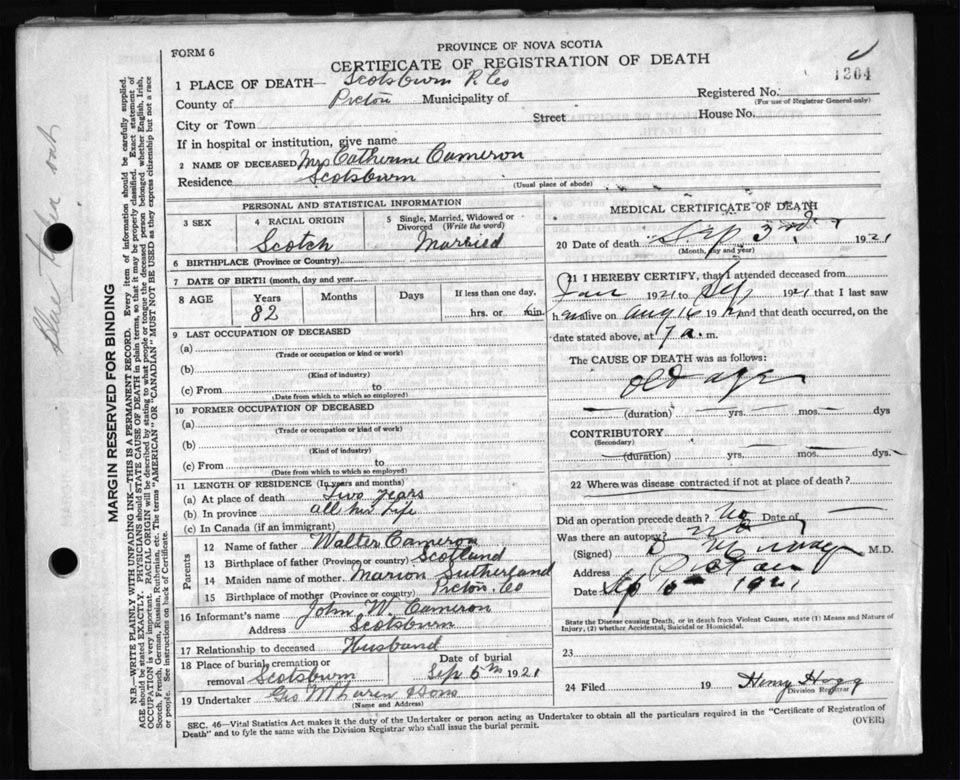 PROVINCE OF NOVA SCOTIA
FORM 6
CERTIFICATE OF REGISTRATION OF DEATH
1204
1 PLACE OF DEATH— Scotsburn P. Co
Registered No.
(For use of Registrar General only)
County of Picton Municipality of
City or Town Street House No.
If in hospital or institution, give name
2 NAME OF DECEASED Mrs Catherine Cameron
Residence Scotsburn
(Usual place of abode)
PERSONAL AND STATISTICAL INFORMATION
3 SEX
4 RACIAL ORIGIN
Scotch
5 Single, Married, Widowed or Divorced (Write the word)
Married
6 BIRTHPLACE (Province or Country)
7 DATE OF BIRTH (month, day and year)
8 AGE Years Months Days If less than one day,
82 hrs. or min.
9 LAST OCCUPATION OF DECEASED
(a)
(Trade or occupation or kind or work)
(b)
(Kind of industry)
(c) From to
(Date from which to which so employed)
10 FORMER OCCUPATION OF DECEASED
(a)
(Trade or occupation or kind of work)
(b)
(Kind of industry)
(c) From to
(Date from which to which so employed)
11 LENGTH OF RESIDENCE (In years and months)
(a) At place of death Two years
(b) In province all his life
(c) In Canada (if an immigrant)
Parents
12 Name of father Walter Cameron
13 Birthplace of father (Province or country) Scotland
14 Maiden name of mother Marion Sutherland
15 Birthplace of mother (Province or country) Picton, Co
16 Informant's name John W. Cameron
Address Scotsburn
17 Relationship to deceased Husband
18 Place of burial, cremation or removal Scotsburn
Date of burial
Sep 5th 1921
19 Undertaker Geo McLaren & Sons
(Name and Address)
MEDICAL CERTIFICATE OF DEATH
20 Date of death Sep 3rd 1921
(Month, day and year)
21 I HEREBY CERTIFY, that I attended deceased from
Jan 1921 to Sep 1921 that I last saw
h alive on Aug 16 19 and that death occurred, on
date stated above, at 7 a. m.
The CAUSE OF DEATH was as follows:
Old age
(duration) yrs. mos. dys
CONTRIBUTORY
(Secondary)
(duration) yrs. mos. dys.
22 Where was disease contracted if not at place of death?
Did an operation precede death? No Date of
Was there an autopsy? No
(Signed) M.D.
Address Pictou
Date Sep 1921
State the Disease causing Death, or in death from Violent Causes, state (1) Means and Nature of
Injury, (2) whether Accidental, Suicidal or Homicidal.
23
24 Filed 19 Henry Hogg
Division Registrar
SEC. 46—Vital Statistics Act makes it the duty of the Undertaker or person acting as Undertaker to obtain all the particulars required in the "Certificate of Registration of
Death" and to fyle the same with the Division Registrar who shall issue the burial permit.
(OVER)
MARGIN RESERVED FOR BINDING
N.B.—WRITE PLAINLY WITH UNFADING INK—THIS IS A PERMANENT RECORD. Every item of information should be carefully supplied.
AGE should be stated EXACTLY. PHYSICIANS should STATE CAUSE OF DEATH in plain terms, so that it may be properly classified. Exact statement of
OCCUPATION is very important. RACIAL ORIGIN will be described by stating to what people or tongue the deceased person belonged whether English, Irish,
Scotch, French, German, Russian, Ruthenian, etc. The terms "AMERICAN" or "CANADIAN" MUST NOT BE USED as they express citizenship but not a race
or people. See instructions on back of Certificate.